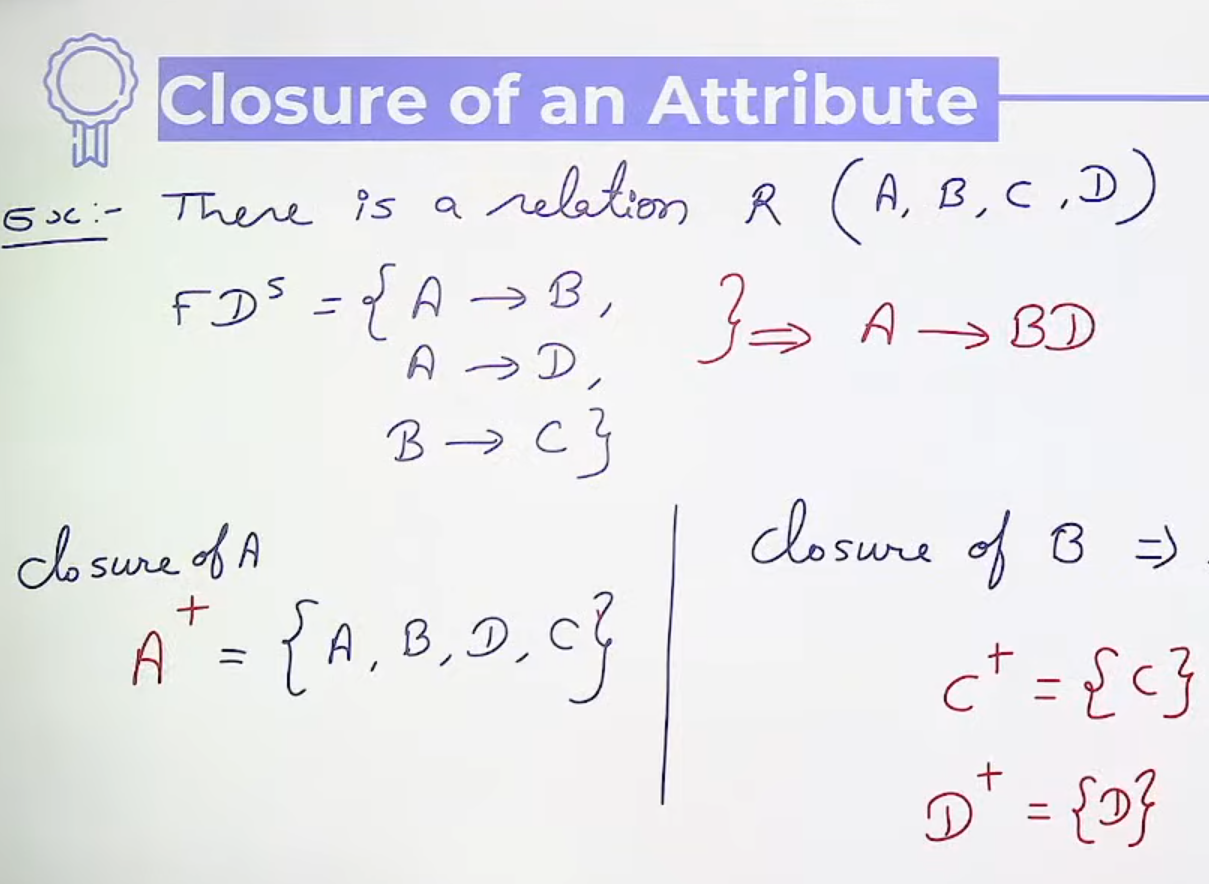 Closure of an Attribute
Ex:- There is a relation R (A, B, C, D)
FDs = { A → B, } ⇒ A → BD
A → D,
B → C }
closure of A
A+ = { A, B, D, C }
closure of B ⇒
C+ = { C }
D+ = { D }